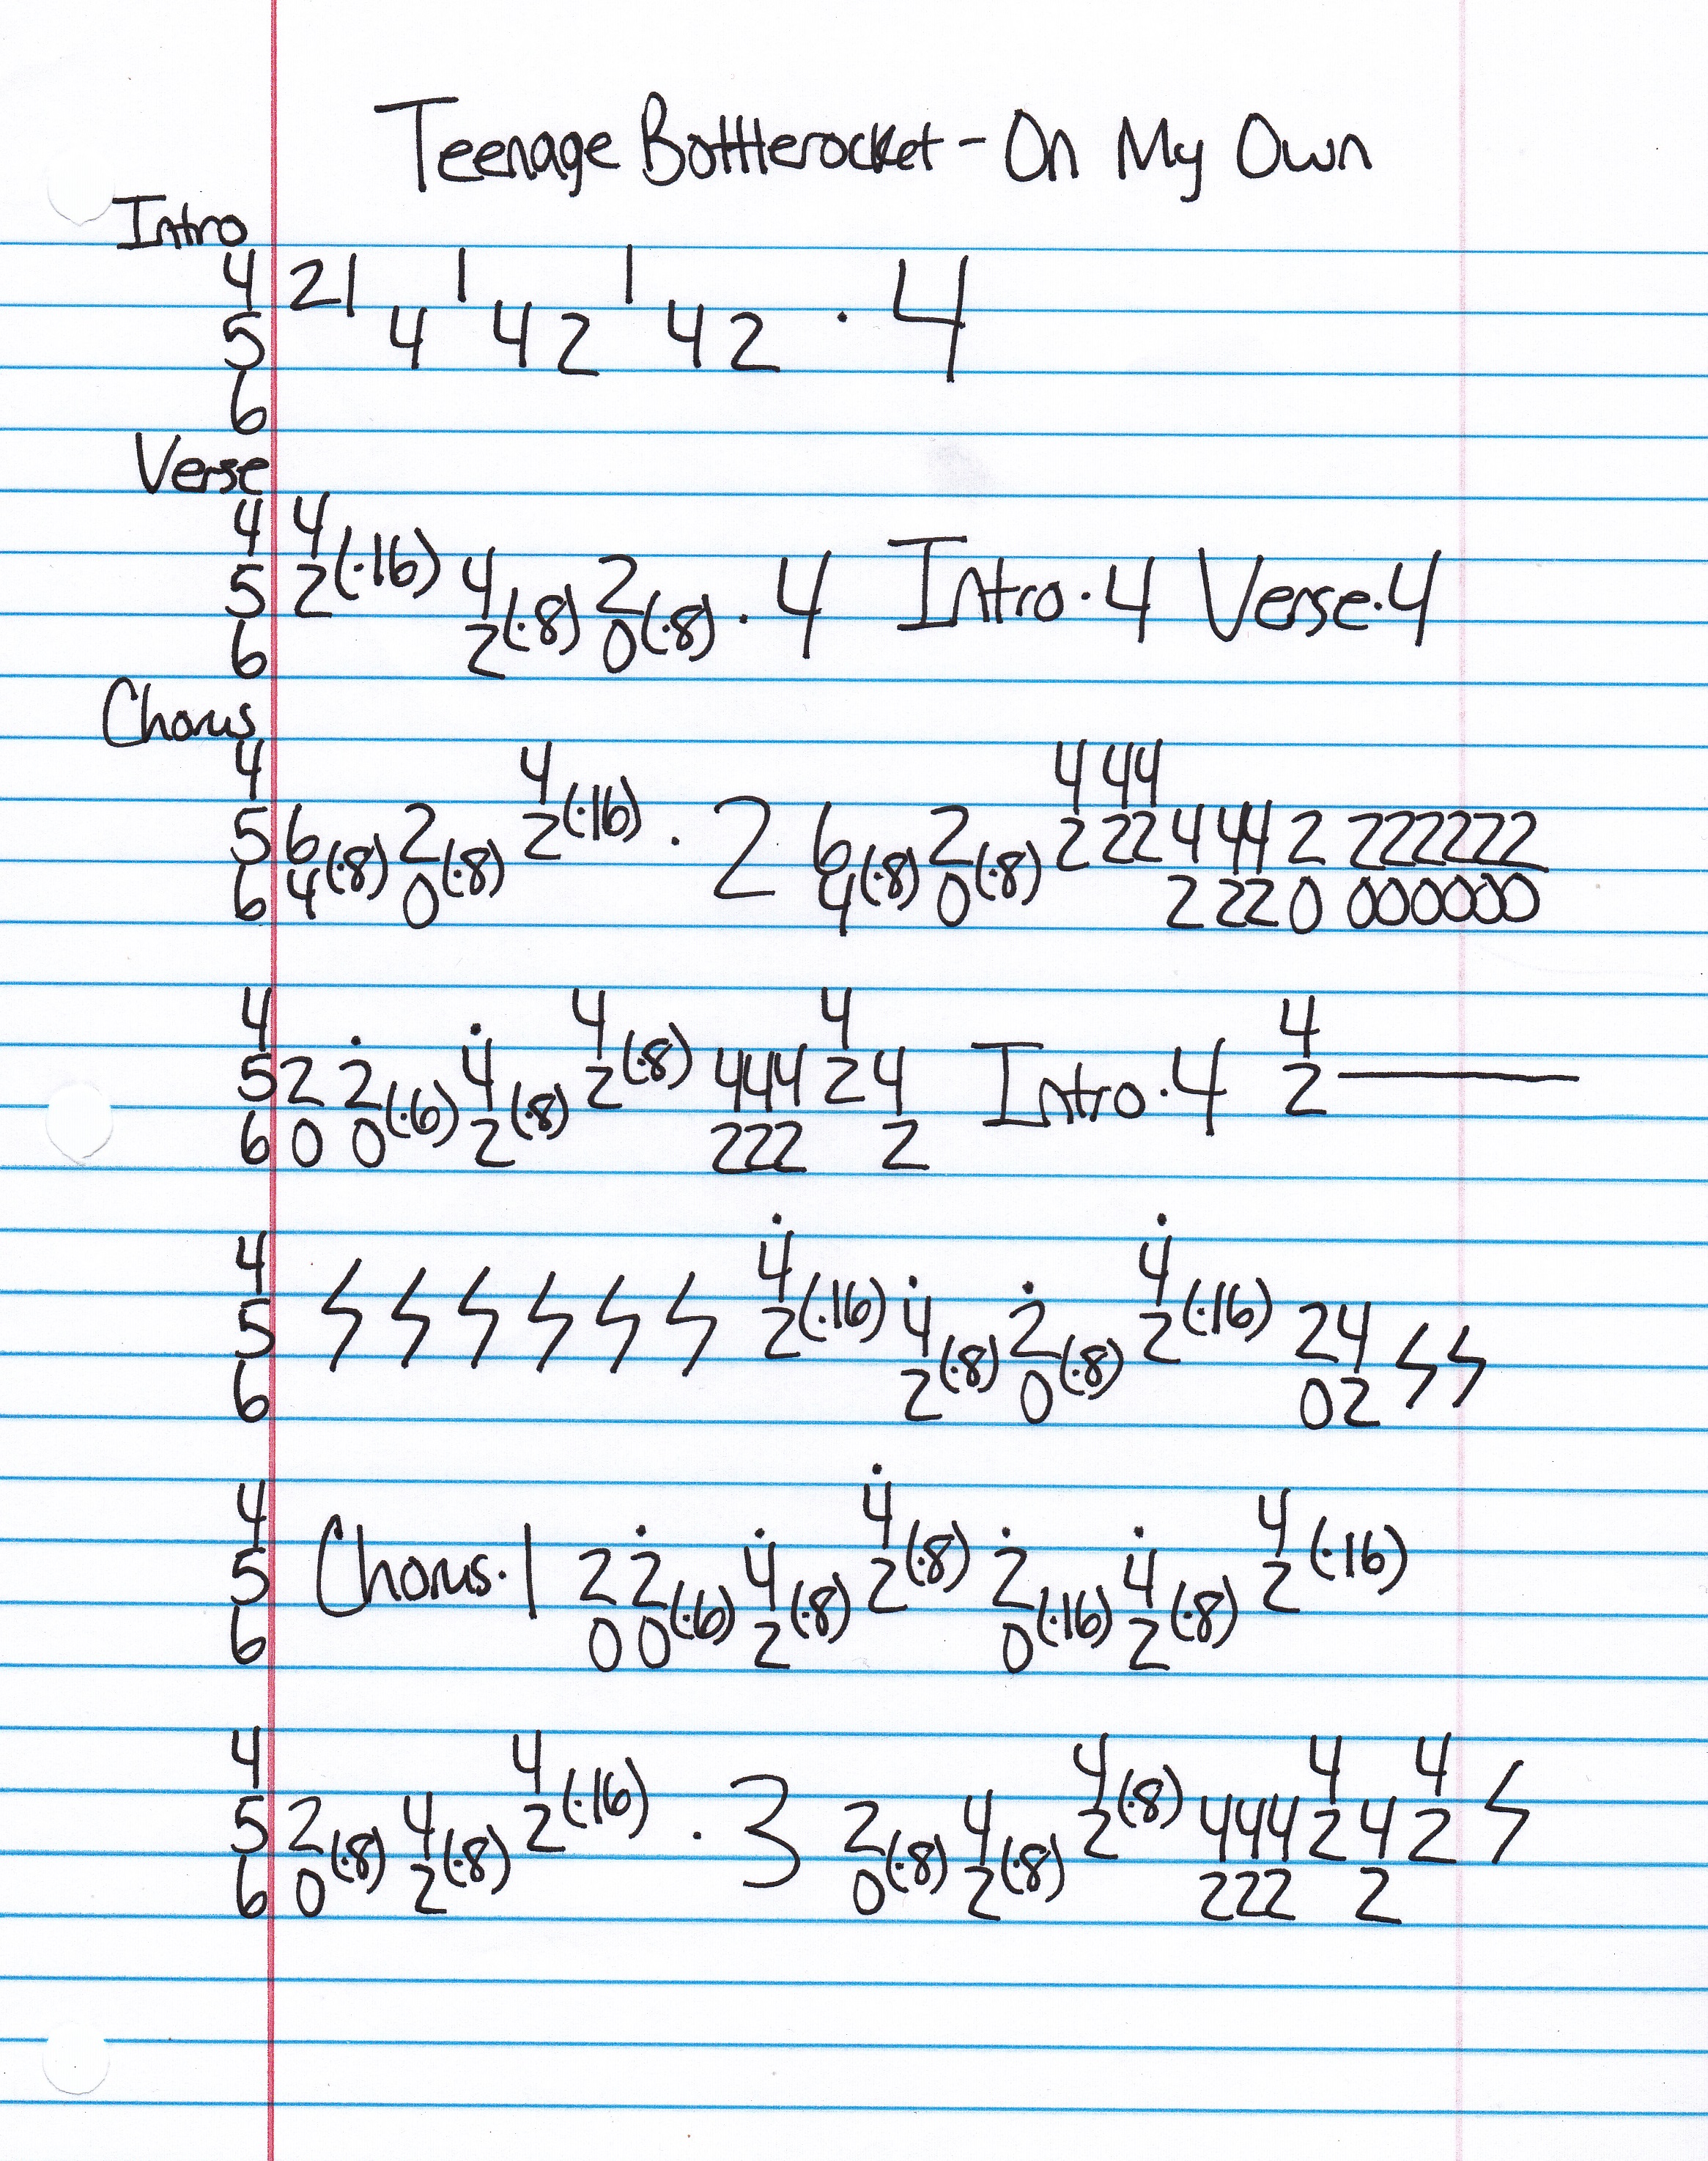 Teenage Bottlerocket - On My Own
Intro
4 21 1 1
5 4 42 42 · 4
6
Verse
4 4
5 2(·16) 4 2 · 4 Intro·4 Verse·4
6 2(·8) 0(·8)
Chorus
4 4 4 44
5 6 2 2(·16) · 2 6 2 2 22 4 44 2 222222
6 4(·8) 0(·8) 4(·8) 0(·8) 2 22 0 000000
4 4 4 4
5 2 2 4 2(·8) 444 2 4 Intro·4 2
6 0 0(·6) 2(·8) 222 2
4 4 4
5 2(·16) 4 2 2(·16) 24
6 2(·8) 0(·8) 02
4 4 4
5 Chorus·1 2 2 4 2(·8) 2 4 2(·16)
6 0 0(·6) 2(·8) 0(·16) 2(·8)
4 4 4 4 4
5 2 4 2(·16) · 3 2 4 2(·8) 444 2 4 2
6 0(·8) 2(·8) 0(·8) 2(·8) 222 2